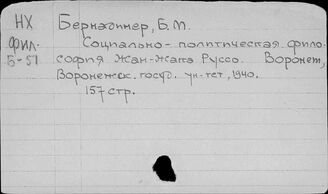 НХ
фил.
Б-51
Бернадинер, Б.М.
Социально-политическая фило-
софия Жан-Жака Руссо. Воронеж,
Воронежск. госуд. ун-тет, 1940.
157 стр.